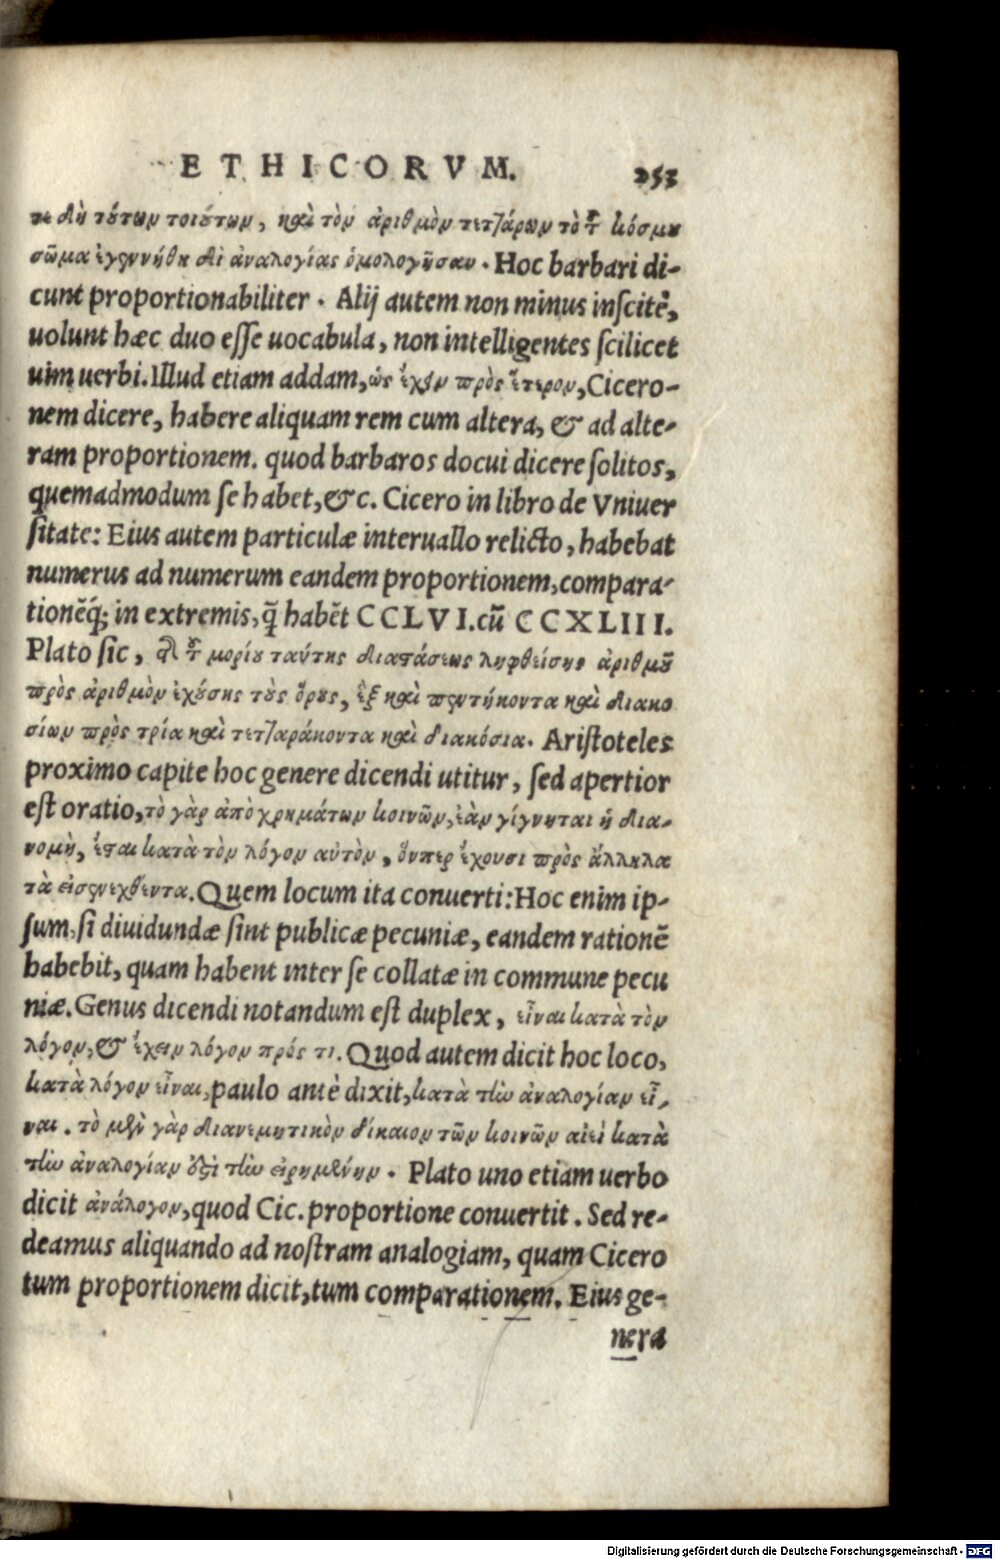 ETHICORVM. 253
κ δὴ τούτων τοιούτων, καὶ τὸν ἀριθμὸν τεττάρων τὸ τοῦ κόσμου
σῶμα ἐγεννήθη δι ἀναλογίας ὁμολογῆσαν. Hoc barbari di-
cunt proportionabiliter. Alij autem non minus inſcitè,
uolunt hæc duo eſſe uocabula, non intelligentes ſcilicet
uim uerbi. Illud etiam addam, ὡς ἔχειν πρὸς ἕτερον, Cicero-
nem dicere, habere aliquam rem cum altera, & ad alte-
ram proportionem. quod barbaros docui dicere ſolitos,
quemadmodum ſe habet, &c. Cicero in libro de Vniuer
ſitate: Eius autem particulæ interuallo relicto, habebat
numerus ad numerum eandem proportionem, compara-
tionēq́; in extremis, q̃ habēt CCLVI. cū CCXLIII.
Plato ſic, τοῦ μορίου ταύτης διαστάσεως ληφθείσης ἀριθμοῦ
πρὸς ἀριθμὸν ἐχούσης τοὺς ὅρους, ἓξ καὶ πεντήκοντα καὶ διακο
σίων πρὸς τρία καὶ τετταράκοντα καὶ διακόσια. Ariſtoteles
proximo capite hoc genere dicendi utitur, ſed apertior
eſt oratio, τὸ γὰρ ἀπὸ χρημάτων κοινῶν, ἐὰν γίγνηται ἡ δια-
νομὴ, ἔσται κατὰ τὸν λόγον αὐτὸν, ὅνπερ ἔχουσι πρὸς ἄλληλα
τὰ εἰσενεχθέντα. Quem locum ita conuerti: Hoc enim ip-
ſum, ſi diuidundæ ſint publicæ pecuniæ, eandem rationē
habebit, quam habent inter ſe collatæ in commune pecu
niæ. Genus dicendi notandum eſt duplex, εἶναι κατὰ τὸν
λόγον, & ἔχειν λόγον πρός τι. Quod autem dicit hoc loco,
κατὰ λόγον εἶναι, paulo antè dixit, κατὰ τὴν ἀναλογίαν εἶ-
ναι. τὸ μὲν γὰρ διανεμητικὸν δίκαιον τῶν κοινῶν αἰεὶ κατὰ
τὴν ἀναλογίαν ἐστὶ τὴν εἰρημένην. Plato uno etiam uerbo
dicit ἀνάλογον, quod Cic. proportione conuertit. Sed re-
deamus aliquando ad noſtram analogiam, quam Cicero
tum proportionem dicit, tum comparationem. Eius ge-
nera
Digitalisierung gefördert durch die Deutsche Forschungsgemeinschaft - DFG